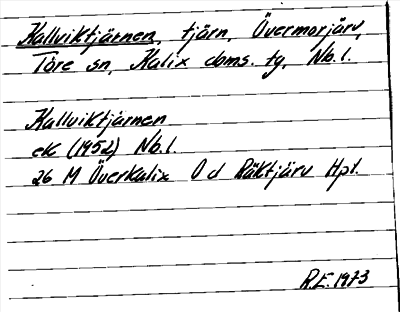 Kallviktjärnen, tjärn, Övermorjärv,
Töre sn, Kalix doms. tg, Nb.l.
Kallviktjärnen
ek (1952) Nb.l.
26 M Överkalix 0 d Räktjärv Hpl.
R.E. 1973